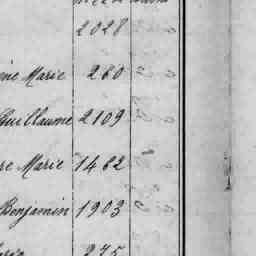 2028
ine Marie 260
Guillaume 2109
re Marie 1462
Benjamin 1903
275